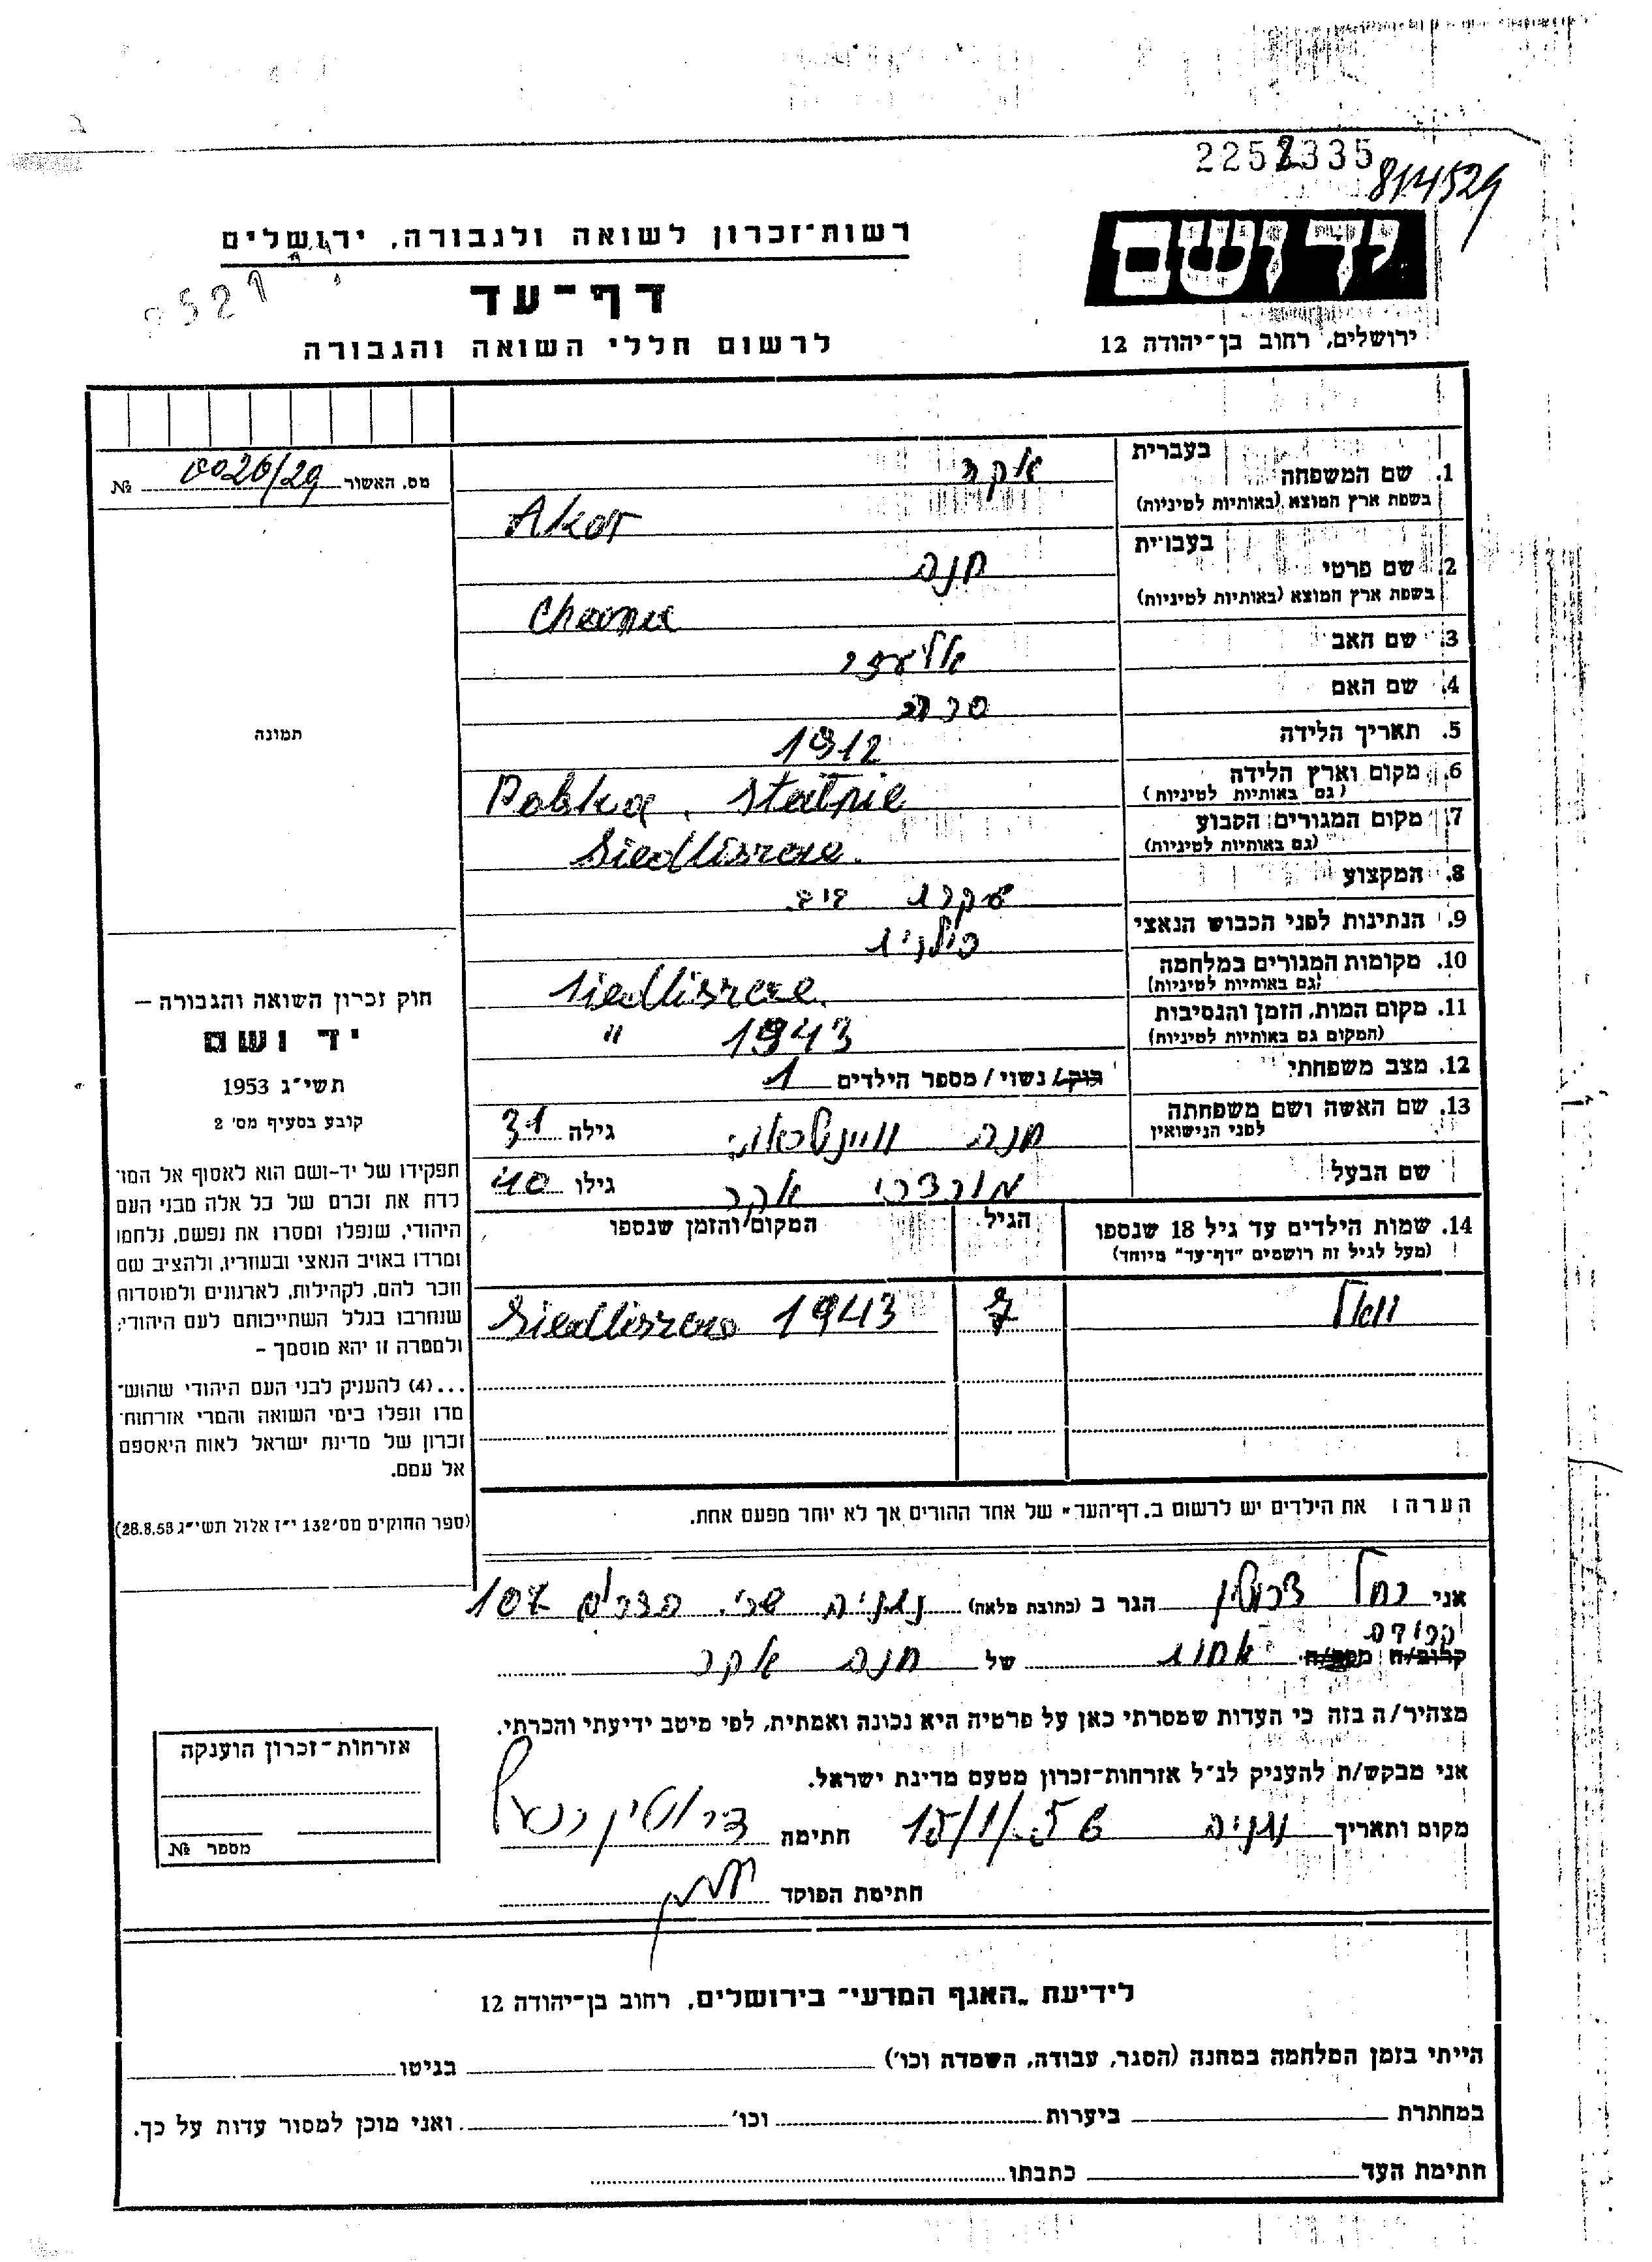 2252335
814529
יד ושם
ירושלים, רחוב בן־יהודה 12
רשות־זכרון לשואה ולגבורה, ירושלים
דף־עד
לרשום חללי השואה והגבורה
מס. האשור 0026/29 №
תמונה
חוק זכרון השואה והגבורה –
יד ושם
תשי"ג 1953
קובע בסעיף מס' 2
תפקידו של יד-ושם הוא לאסוף אל המו־
לדת את זכרם של כל אלה מבני העם
היהודי, שנפלו ומסרו את נפשם, נלחמו
ומרדו באויב הנאצי ובעוזריו, ולהציב שם
וזכר להם, לקהילות, לארגונים ולמוסדות
שנחרבו בגלל השתייכותם לעם היהודי;
ולמטרה זו יהא מוסמך –
...(4) להעניק לבני העם היהודי שהוש־
מדו ונפלו בימי השואה והמרי אזרחות־
זכרון של מדינת ישראל לאות היאספם
אל עמם.
(ספר החוקים מס' 132 י"ז אלול תשי"ג 28.8.53)
בעברית
1. שם המשפחה אקר
בשפת ארץ המוצא (באותיות לטיניות) Aker
בעברית
2. שם פרטי חנה
בשפת ארץ המוצא (באותיות לטיניות) Chana
3. שם האב אליעזר
4. שם האם שרה
5. תאריך הלידה 1912
6. מקום וארץ הלידה Polska,
(גם באותיות לטיניות)
7. מקום המגורים הקבוע Siedliszcze
(גם באותיות לטיניות)
8. המקצוע עקרת בית
9. הנתינות לפני הכבוש הנאצי פולנית
10. מקומות המגורים במלחמה Siedliszcze
(גם באותיות לטיניות)
11. מקום המות, הזמן והנסיבות " 1943
(המקום גם באותיות לטיניות)
12. מצב משפחתי רוק/ נשוי / מספר הילדים 1
13. שם האשה ושם משפחתה חנה גילה 31
לפני הנישואין
שם הבעל מורדכי אקר גילו 40
14. שמות הילדים עד גיל 18 שנספו הגיל המקום והזמן שנספו
(מעל לגיל זה רושמים "דף־עד" מיוחד)
7 Siedliszcze 1943
הערה: את הילדים יש לרשום ב"דף־העד" של אחד ההורים אך לא יותר מפעם אחת.
אני רחל הגר ב (כתובת מלאה) נתניה 107
קרובה
קרוב/ה אחות של חנה אקר
מצהיר/ה בזה כי העדות שמסרתי כאן על פרטיה היא נכונה ואמתית, לפי מיטב ידיעתי והכרתי.
אני מבקש/ת להעניק לנ"ל אזרחות־זכרון מטעם מדינת ישראל.
מקום ותאריך נתניה 15/1/56 חתימה
חתימת הפוקד
אזרחות־זכרון הוענקה
מספר №
לידיעת "האגף המדעי" בירושלים, רחוב בן־יהודה 12
הייתי בזמן המלחמה במחנה (הסגר, עבודה, השמדה וכו') בגיטו
במחתרת ביערות וכו' ואני מוכן למסור עדות על כך.
חתימת העד כתבתו